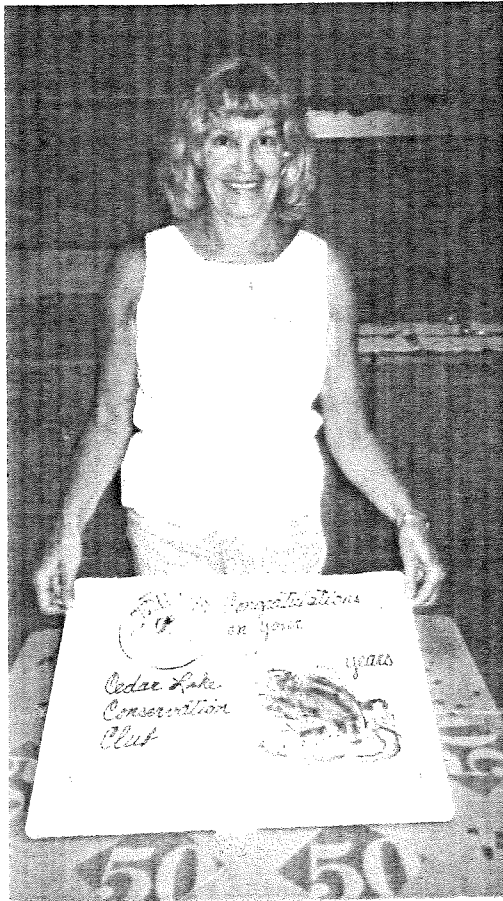 Congratulations
on your
years
Cedar Lake
Conservation
Club
50
50